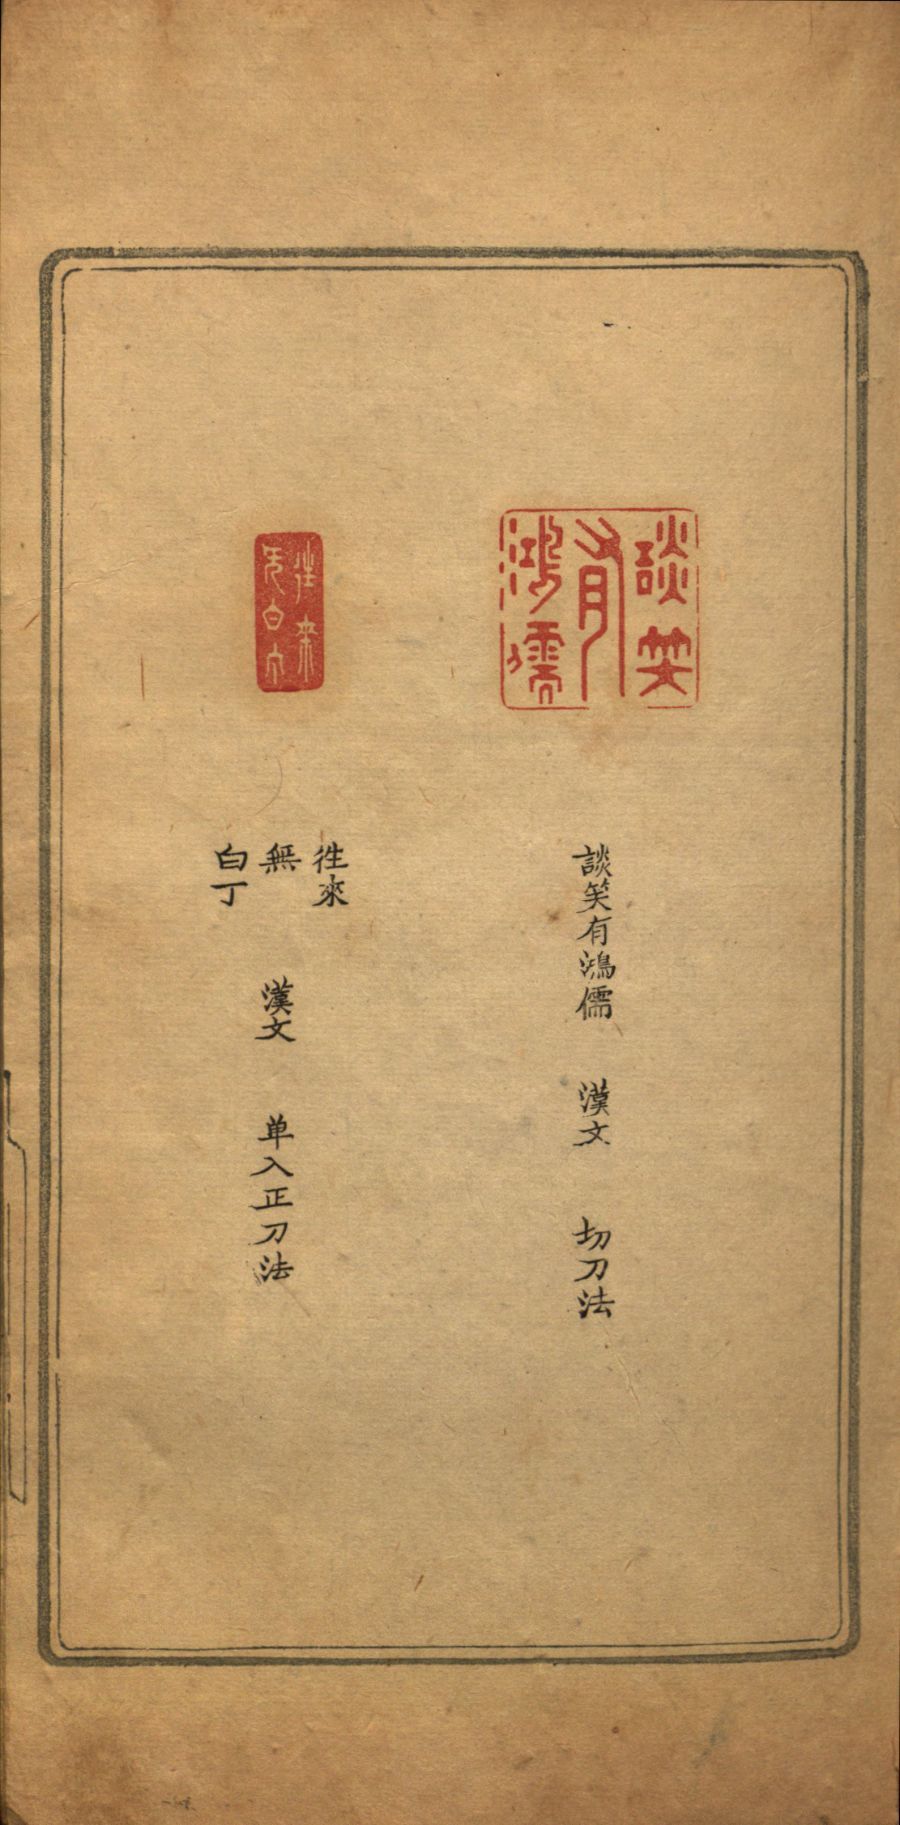 談笑有鴻儒
談笑有鴻儒 漢文 切刀法
往來無白丁
徃來
無 漢文 单入正刀法
白丁